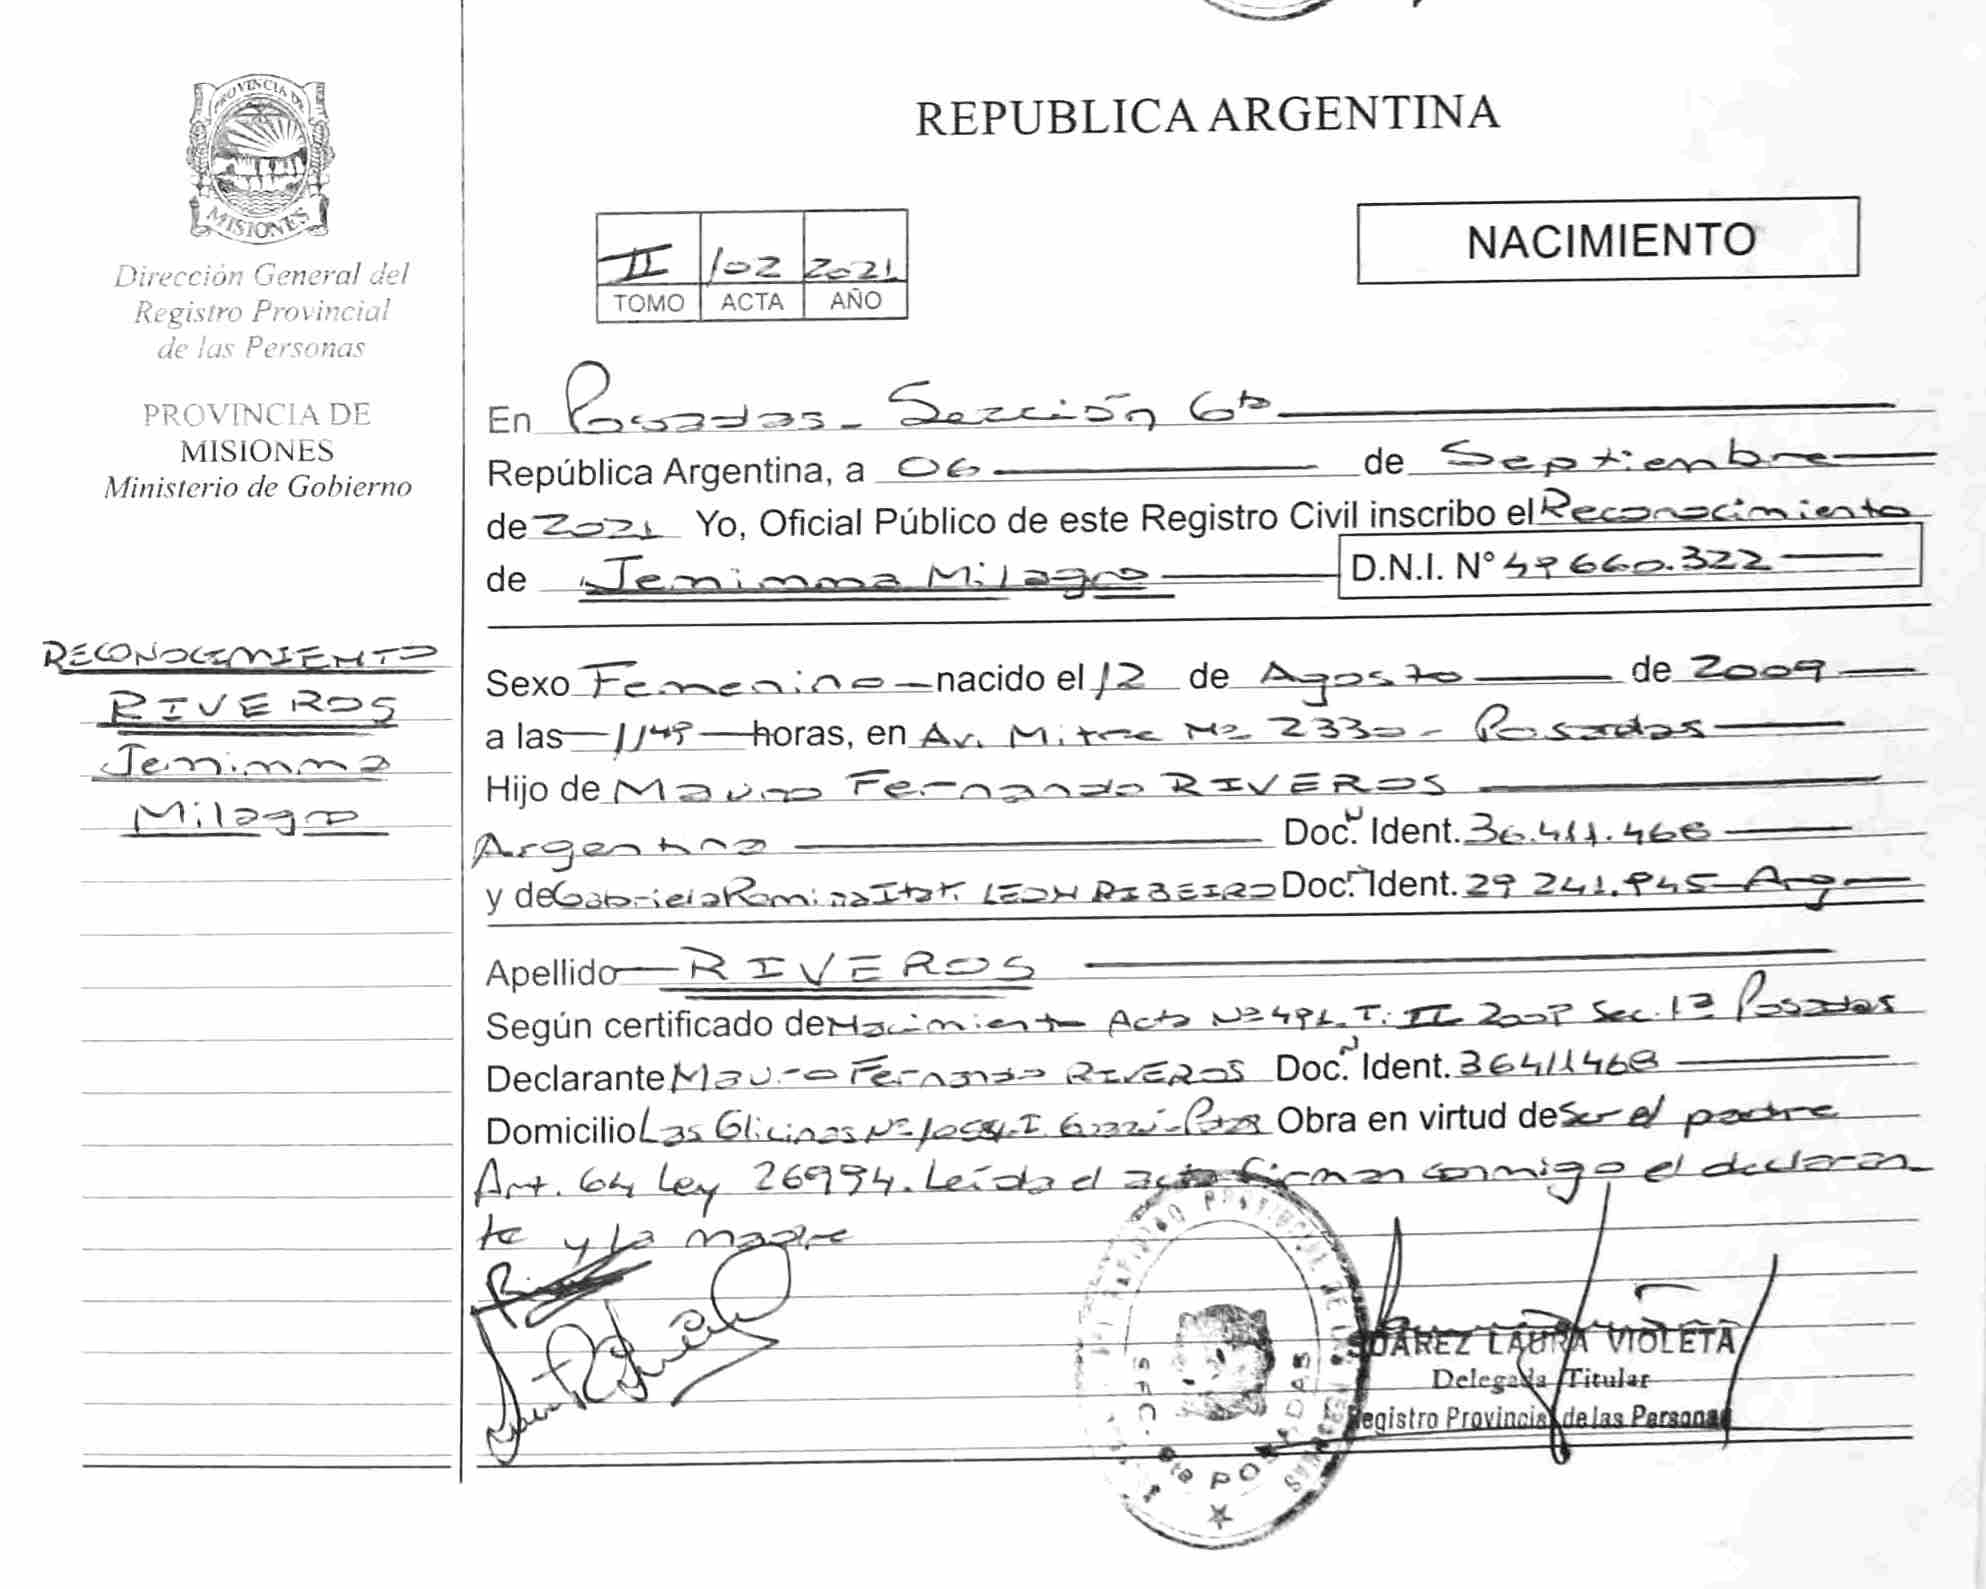 PROVINCIA DE
MISIONES
Dirección General del
Registro Provincial
de las Personas
PROVINCIA DE
MISIONES
Ministerio de Gobierno
RECONOCIMIENTO
RIVEROS
Jemimma
Milagro
REPUBLICA ARGENTINA
NACIMIENTO
II 102 2021
TOMO ACTA AÑO
En Posadas - Sección 6ta
República Argentina, a 06 de Septiembre
de 2021 Yo, Oficial Público de este Registro Civil inscribo el Reconocimiento
de Jemimma Milagro D.N.I. N° 49660.322
Sexo Femenino nacido el 12 de Agosto de 2009
a las 1149 horas, en Av. Mitre Nº 2330 - Posadas
Hijo de Mauro Fernando RIVEROS
Argentina Doc. Ident. 36.411.468
y de Gabriela Romina LEON RIBEIRO Doc. Ident. 29 241.945 Arg
Apellido RIVEROS
Según certificado de Nacimiento Acta Nº 491 T: II Sec. 1ª Posadas
Declarante Mauro Fernando RIVEROS Doc. Ident. 36411468
Domicilio Las Glicinas Nº Obra en virtud de Ser el padre
Art. 64 Ley 26994. Leída el acta firman conmigo el declaran
te y la madre
SUAREZ LAURA VIOLETA
Delegada Titular
Registro Provincial de las Personas
6ta POSADAS